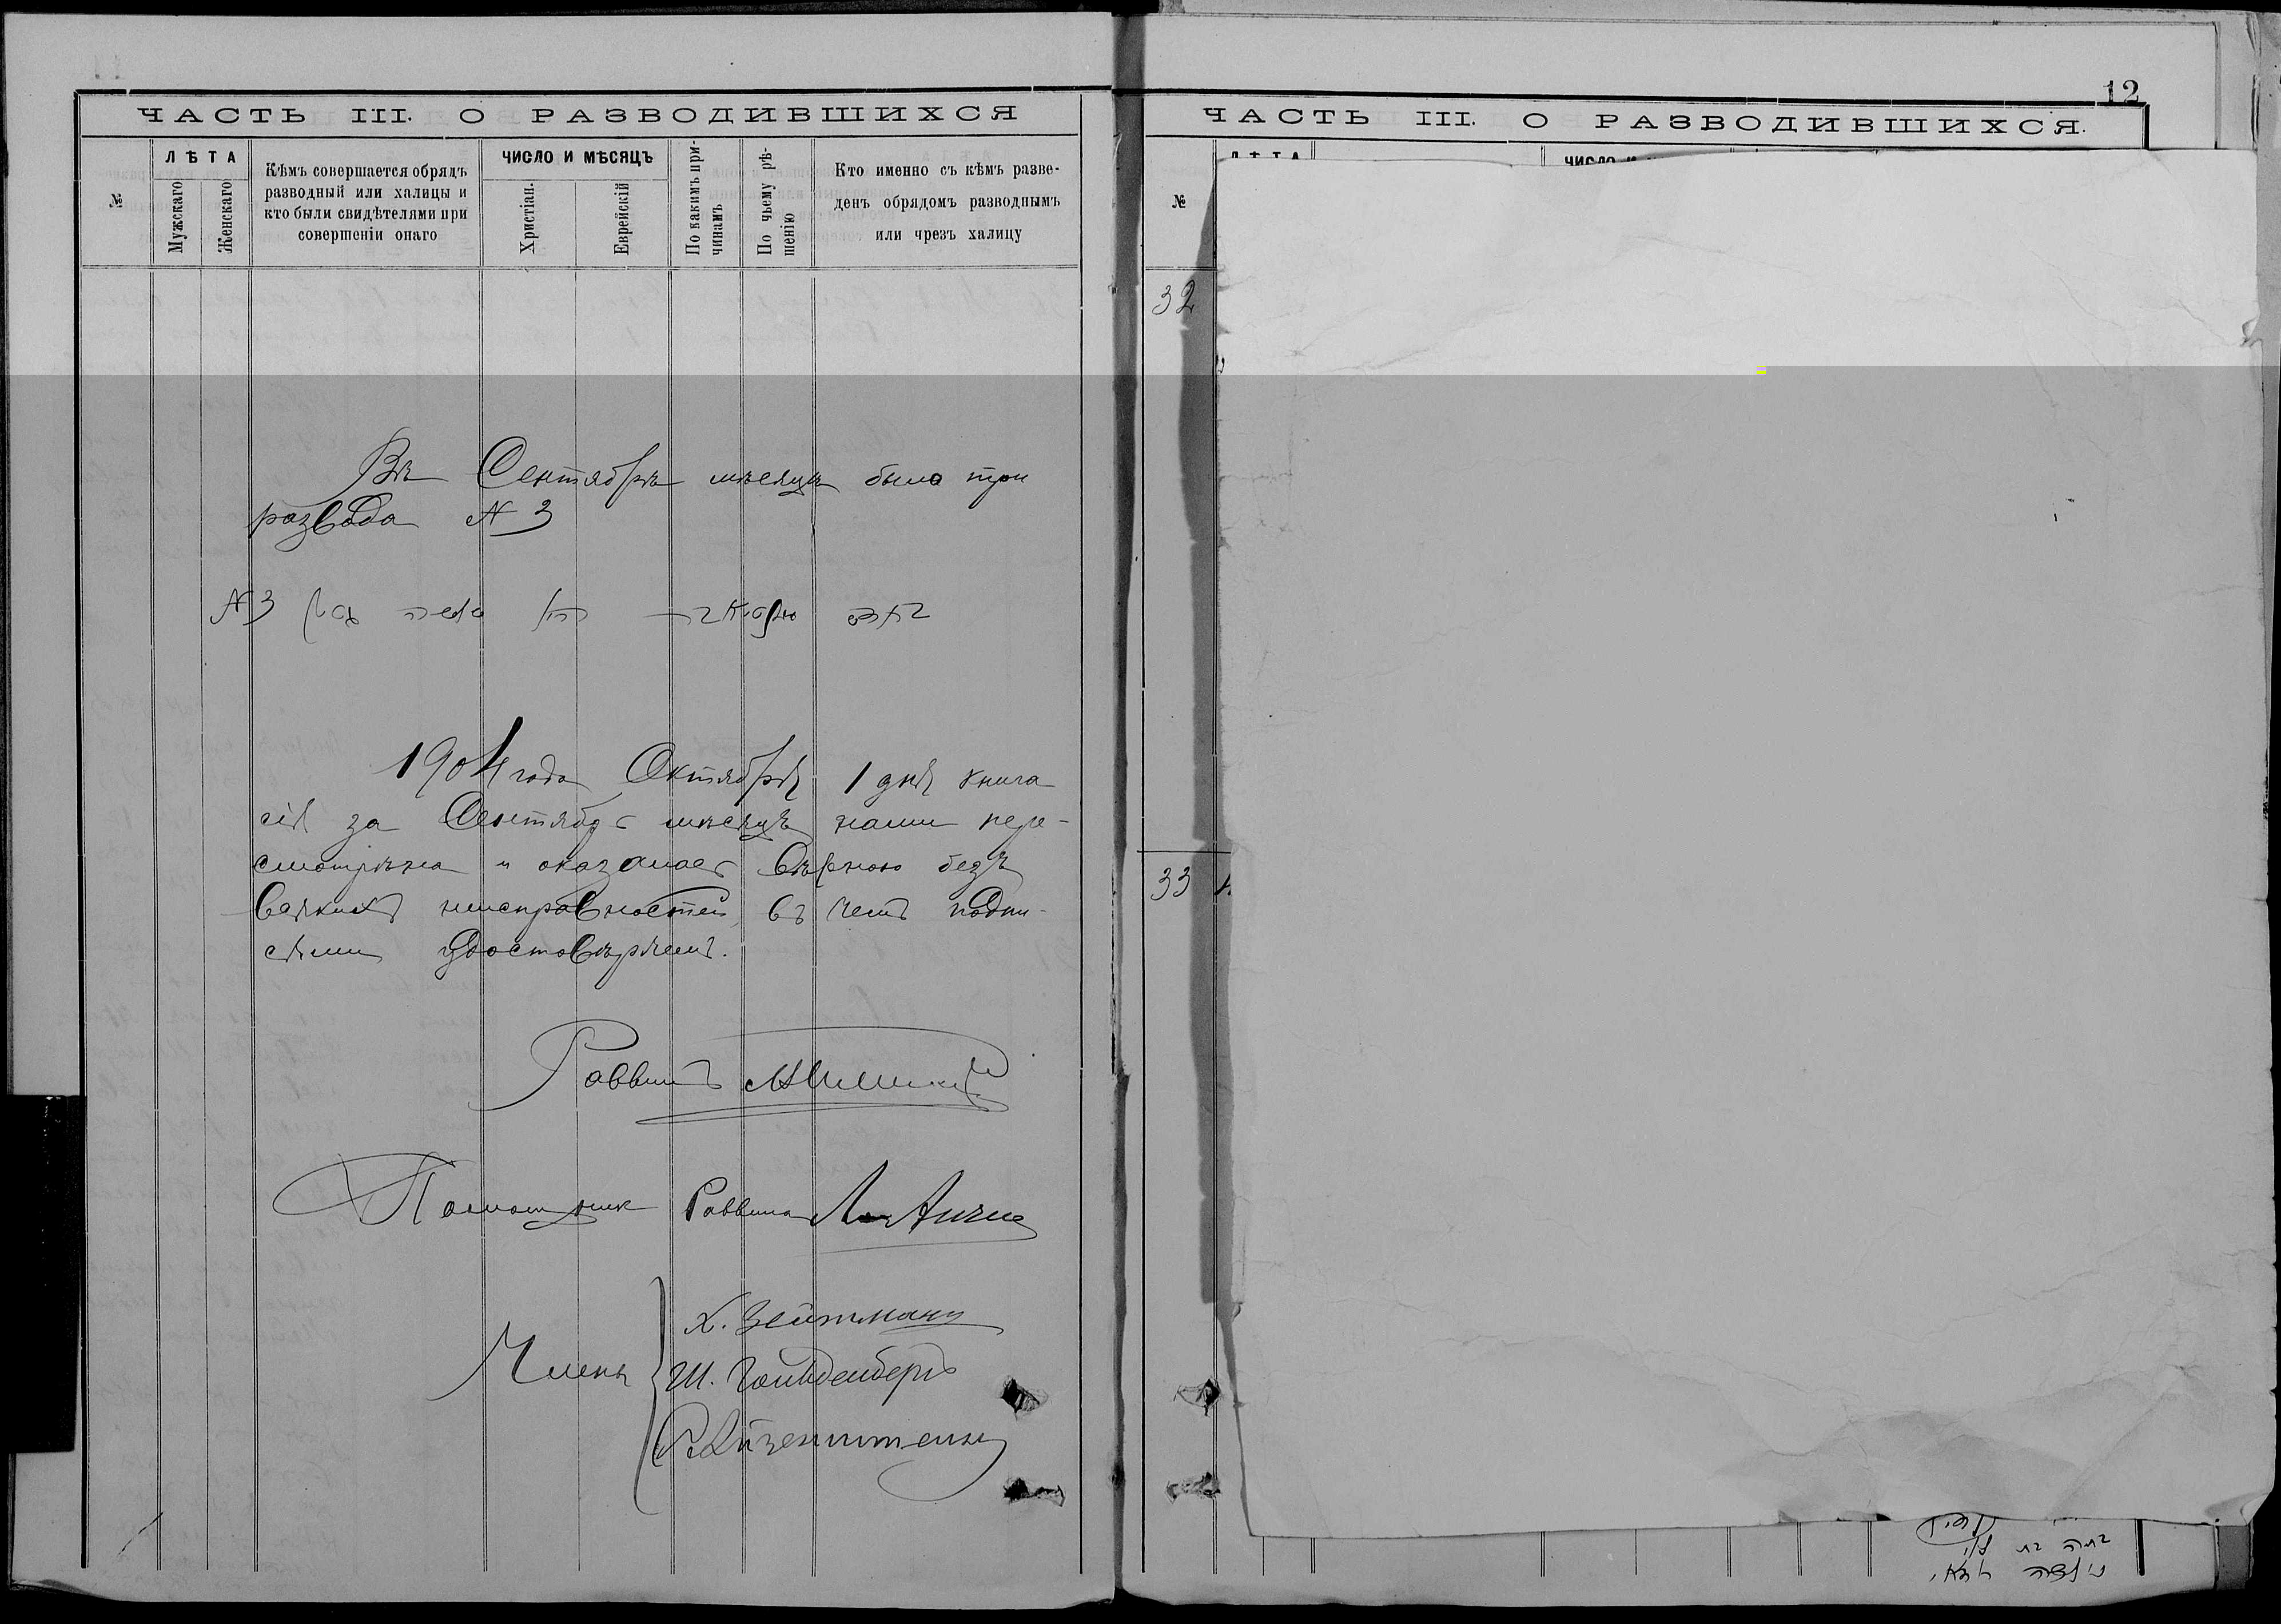 ЧАСТЬ III. О РАЗВОДИВШИХСЯ
№
ЛѢТА
Мужскаго
Женскаго
Кѣмъ совершается обрядъ
разводный или халицы и
кто были свидѣтелями при
совершеніи онаго
ЧИСЛО И МѢСЯЦЪ
Христіан.
Еврейскій
По какимъ при-
чинамъ
По чьему рѣ-
шенію
Кто именно съ кѣмъ разве-
денъ обрядомъ разводнымъ
или чрезъ халицу
Въ Сентябрѣ мѣсяцѣ было три
развода № 3
№ 3
1904 года Октября 1 дня книга
сія за Сентябрь мѣсяцъ нами пере-
смотрѣна и оказалась вѣрною безъ
всякихъ неисправностей, въ чемъ подпи-
сями удостовѣряемъ.
Раввинъ
Помощник Раввина
Члены
Х. Зейтманъ
Ш. Гольденбергъ
Айзенштейнъ
12
ЧАСТЬ III. О РАЗВОДИВШИХСЯ.
№
ЛѢТА
ЧИСЛО И
32
33